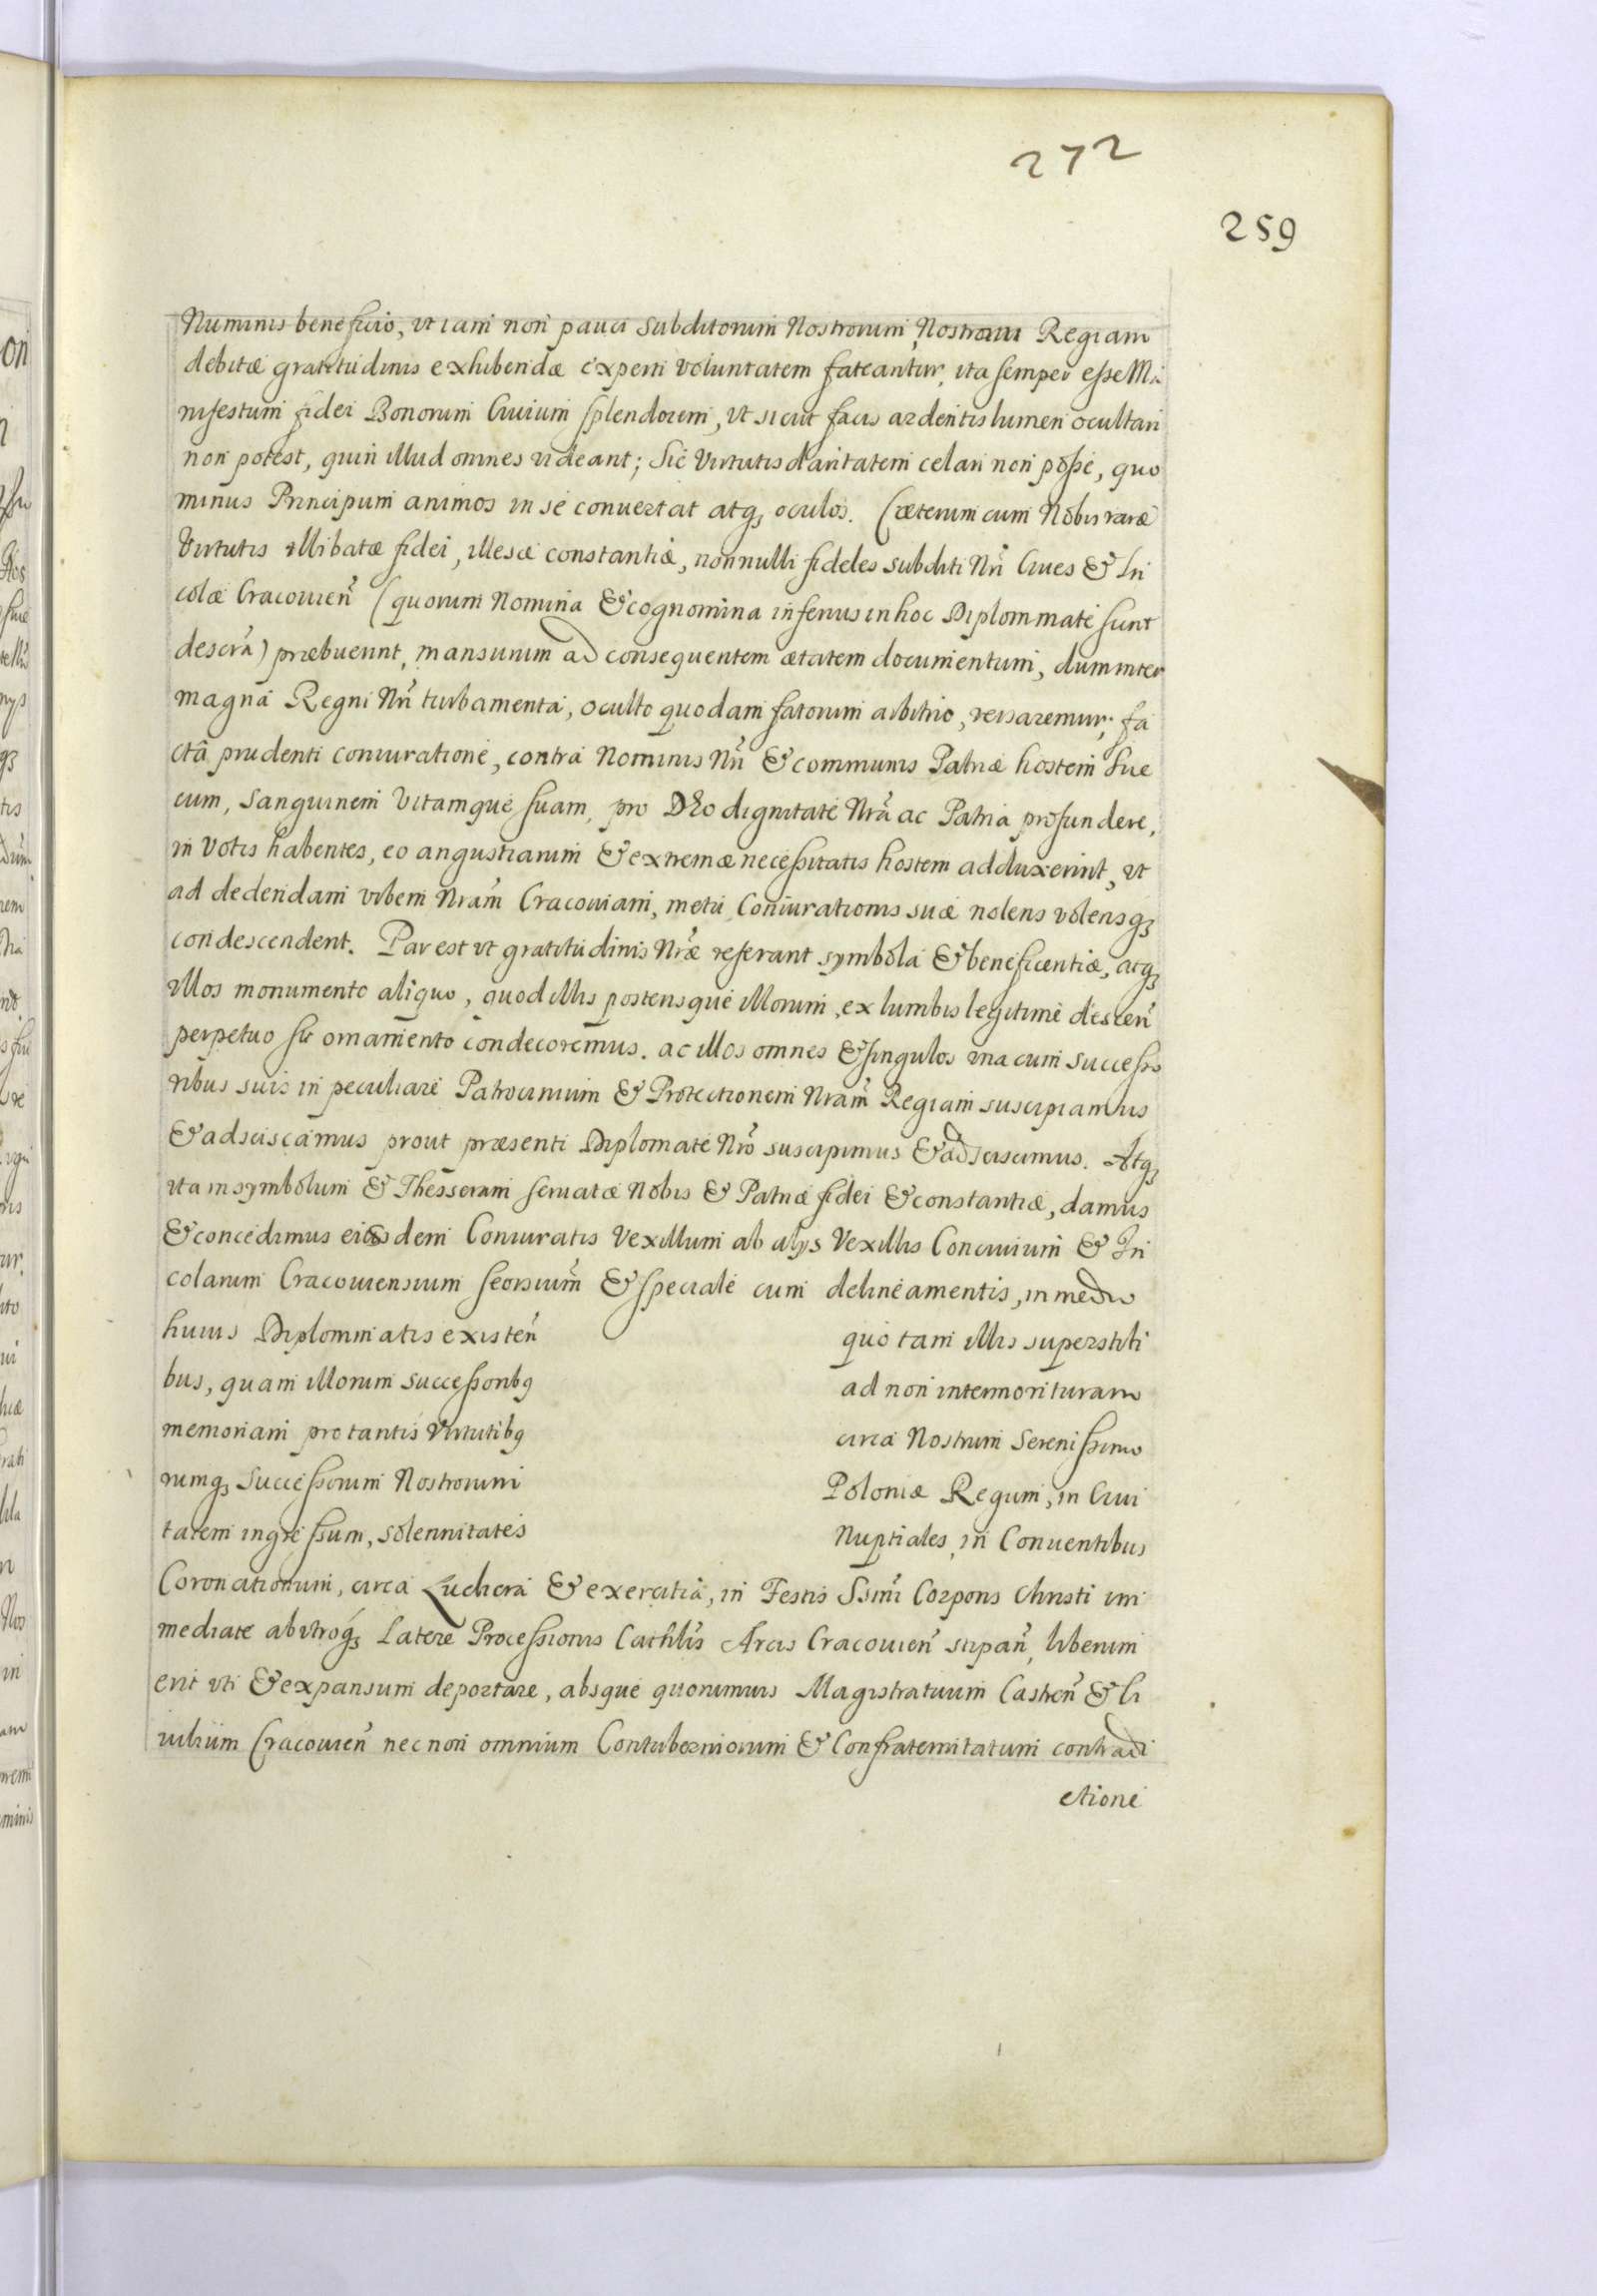 272
259
Numinis beneficio, vt iam non pauci Subditorum Nostrorum, Nostram Regiam
debitæ gratitudinis exhibendæ experti voluntatem fateantur, ita semper esse Ma
nifestum fidei Bonorum Ciuium splendorem, vt sicut facis ardentis lumen ocultari
non potest, quin illud omnes videant; Sic Virtutis claritatem celari non posse, quo
minus Principum animos in se conuertat atq; oculos. Cæterum cum Nobis raræ
Virtutis illibatæ fidei, illesæ constantiæ, nonnulli fideles subditi Nri Ciues & In
colæ Cracouien (quorum Nomina & cognomina inferius in hoc Diplommate sunt
descra) præbuerint, mansurum ad consequentem ætatem documentum, dum inter
magna Regni Nri turbamenta, oculto quodam fatorum arbitrio, versaremur; fa
ctâ prudenti coniuratione, contra Nominis Nri & communis Patriæ hostem Sue
cum, Sanguinem Vitamque suam, pro Deo dignitate Nra ac Patria profundere,
in Votis habentes, eo angustiarum & extremæ necessitatis hostem adduxerint, vt
ad dedendam vrbem Nram Cracouiam, metu Coniurationis suæ nolens volensq;
condescendent. Par est vt gratitudinis Nræ referant symbola & beneficentiæ, atq;
illos monumento aliquo, quod illis posterisque illorum, ex lumbis legitime descen
perpetuo sit ornamento condecoremus. ac illos omnes & singulos vna cum successo
ribus suis in peculiare Patrocinium & Protectionem Nram Regiam suscipiamus
& adsciscamus prout præsenti Diplomate Nro suscipimus & adsciscimus. Atq;
ita in symbolum & Thesseram seruatæ Nobis & Patriæ fidei & constantiæ, damus
& concedimus eisdem Coniuratis Vexillum ab alijs Vexillis Conciuium & In
colarum Cracouiensium seorsium & speciale cum delineamentis, in medio
huius Diplommatis existen quo tam illis superstiti
bus, quam illorum successoribq ad non intermorituram
memoriam pro tantis Virtutibq circa Nostrum Serenissimo
rumq; Successorum Nostrorum Poloniæ Regum, in Ciui
tatem ingressum, solennitates Nuptiales, in Conuentibus
Coronationum, circa Ludicra & exercitia, in Festis Ssmi Corporis Christi im
mediate ab vtroq; Latere Processionis Cathlis Arcis Cracouien stipan, liberum
erit vti & expansum deportare, absque quorumuis Magistratuum Castren & Ci
uilium Cracouien nec non omnium Contuberniorum & Confraternitatum contradi
ctione